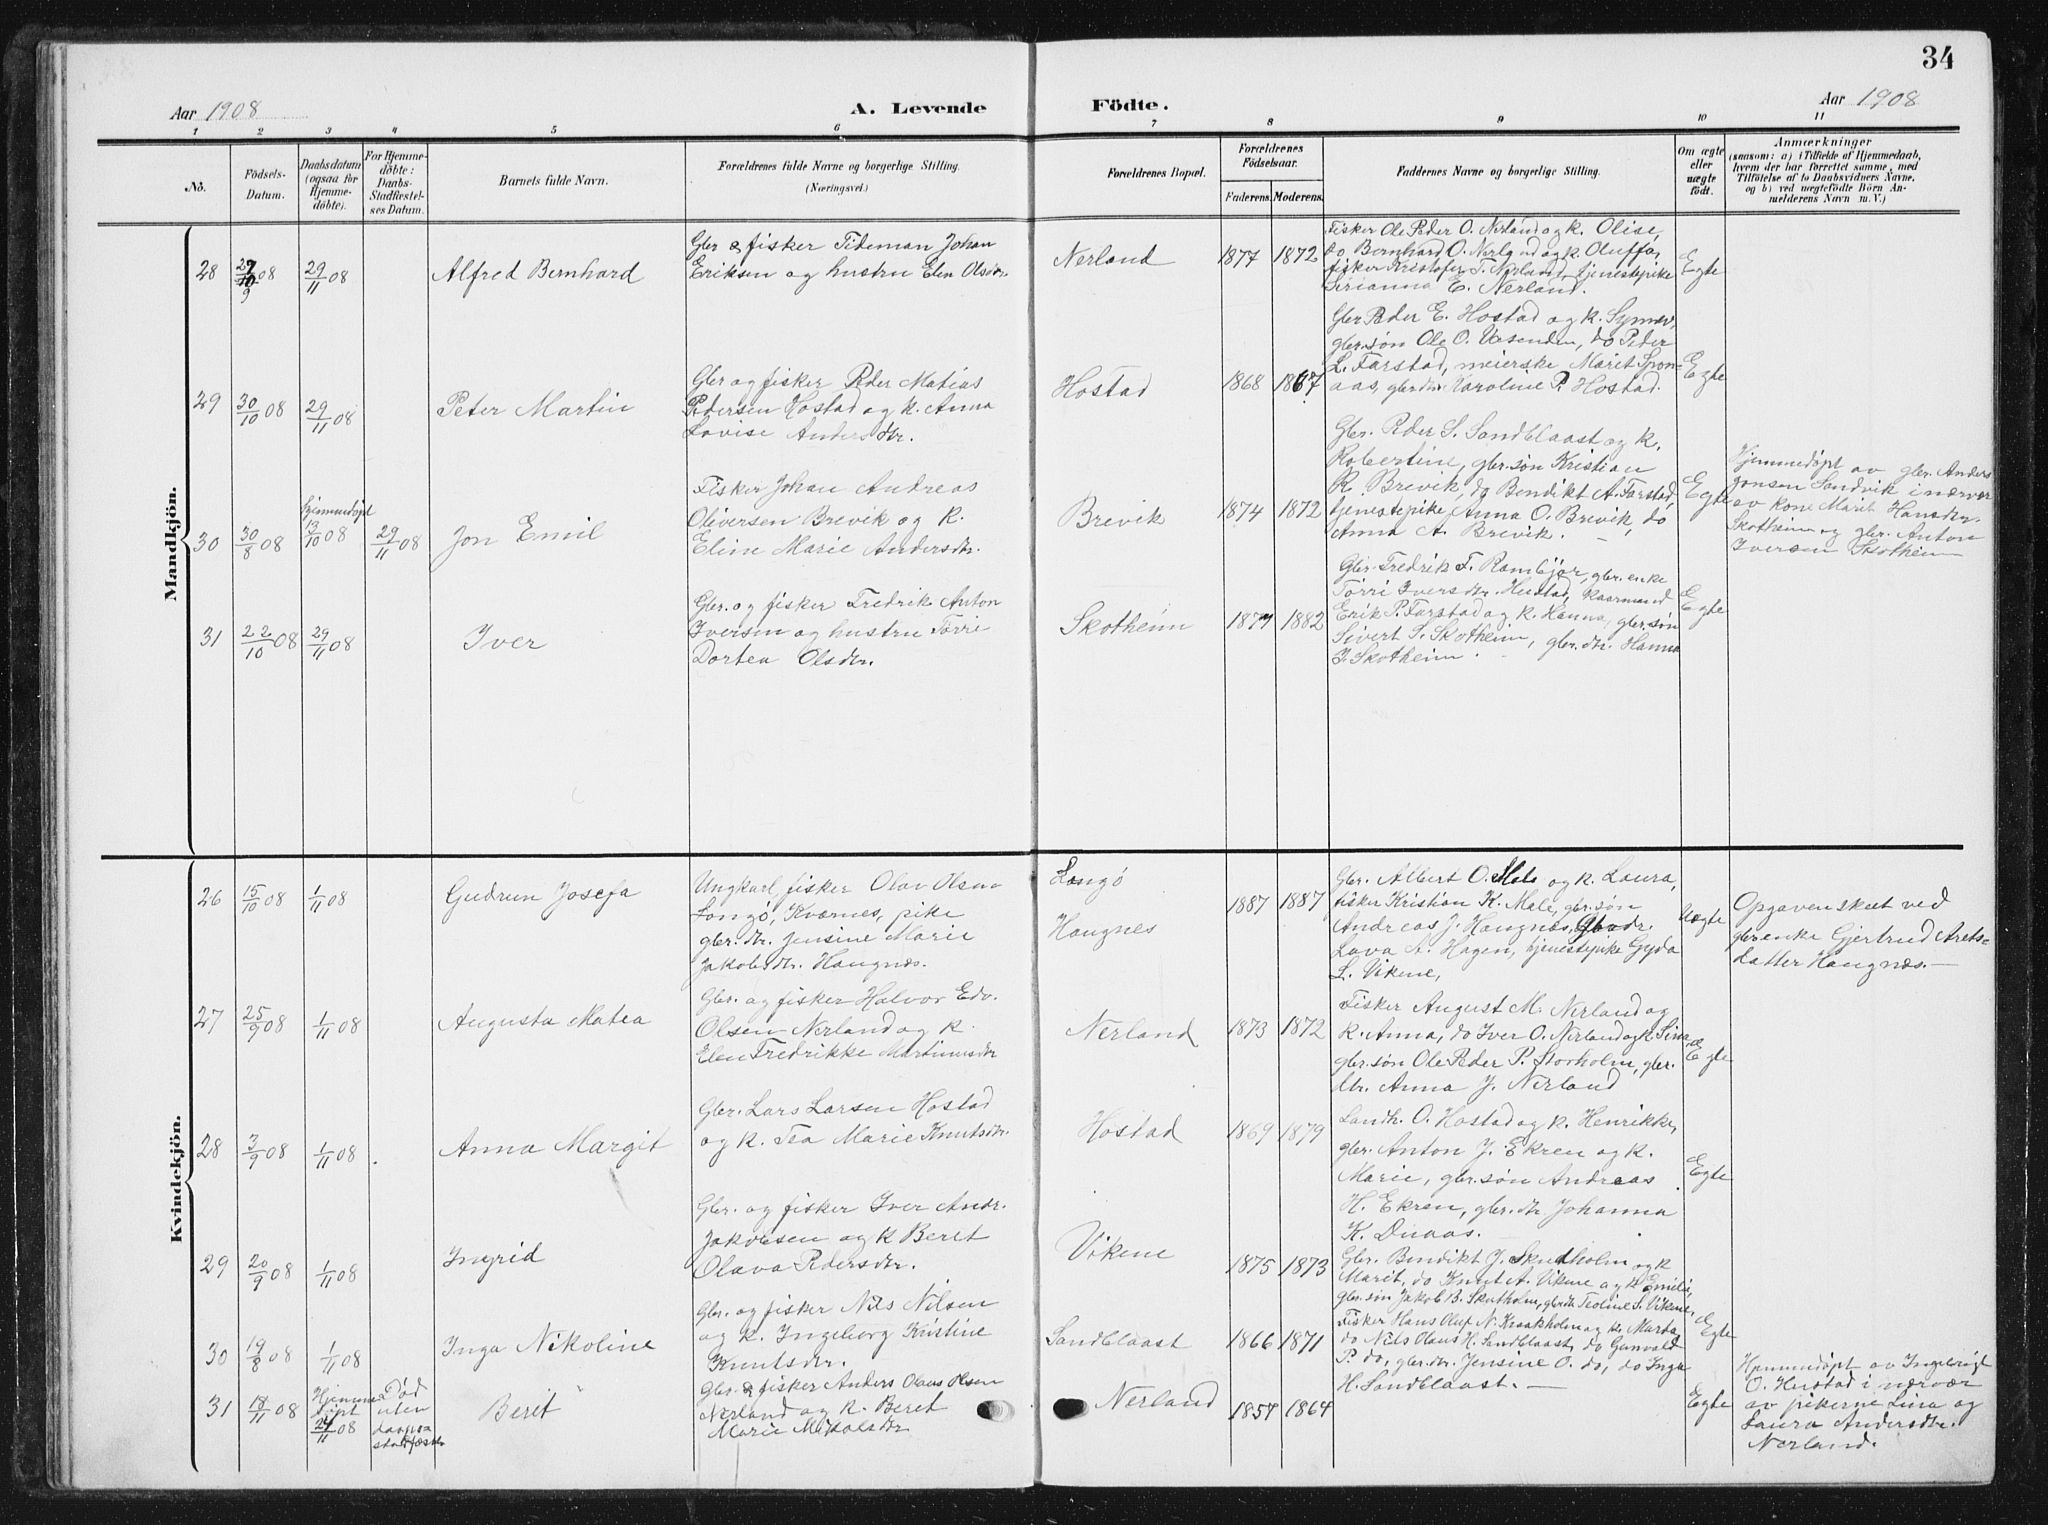 34
Aar 1908
A. Levende
Födte.
Aar 1908
1 2 3 4 5 6 7 8 9 10 11
No.
Födsels-
Datum.
Daabsdatum
(ogsaa for
Hjemme-
döbte).
For Hjemme-
döbte:
Daabs-
Stadfæstel-
ses Datum.
Barnets fulde Navn.
Forældrenes fulde Navne og borgerlige Stilling.
(Næringsvei.)
Forældrenes Bopæl.
Forældrenes
Födselsaar.
Faderens. Moderens.
Faddernes Navne og borgerlige Stilling.
Om ægte
eller
uægte
födt.
Anmærkninger
(saasom: a) i Tilfælde af Hjemmedaab,
hvem der har forrettet samme, med
Tilföielse af to Daabsvidners Navne,
og b) ved uægtefödte Börn An-
melderens Navn m. V.)
Mandkjön.
28
29/11 08
Alfred Bernhard
Gbr & fisker Tideman Johan
Eriksen og hustru Elen Olsdtr.
Nerland
1877 1872
Fisker Ole Peder O. Nerland og k. Olise,
do Bernhard O. Nerland og k. Oluffa,
fisker Kristofer T. Nerland, tjenestepike
Serianna E. Nerland.
Egte
29
30/10 08
29/11 08
Peter Martin
Gbr og fisker Peder Matias
Pedersen Hostad og k. Anna
Lovise Andersdtr.
Hostad
1868 1867
Gbr Peder E. Hostad og k. Synnøv,
gbr.søn Ole O. Vesenden, do Peder
L. Farstad, meierske Marit Spon-
aas, gbrdtr. Karoline P. Hostad.
Egte
30
30/8 08
Hjemmedøpt
13/10 08
29/11 08
Jon Emil
Fisker Johan Andreas
Oliversen Brevik og k.
Eline Marie Andersdtr.
Brevik
1874 1872
Gbr. Peder S. Sandblaast og k.
Robertine, gbr.søn Kristian
R. Brevik, do Bendikt A. Farstad,
tjenestepike Anna O. Brevik, do
Anna A. Brevik. —
Egte
Hjemmedøpt av gbr. Anders
Jonsen Sandvik i nærvær
av kone Marit Hansdtr.
Skotheim og gbr. Anton
Iversen Skotheim
31
22/10 08
29/11 08
Iver
Gbr. og fisker Fredrik Anton
Iversen og hustru Torri
Dortea Olsdtr.
Skotheim
1877 1882
Gbr. Fredrik F. Rambjør, gbr. enke
Torri Iversdtr. Hustad, kaarmand
Erik P. Farstad og k. Hanna, gbr.søn
Sivert S. Skotheim, gbr. dtr. Hanna
I. Skotheim.
Egte
Kvindekjön.
26
15/10 08
1/11 08
Gudrun Josefa
Ungkarl, fisker Olav Olsen
Langø, Kværnes, pike
gbr. dtr. Jensine Marie
Jakobsdtr. Haugnes.
Langø
Haugnes
1887 1887
Gbr. Albert O. Male og k. Laura,
fisker Kristian K. Male, gbr. søn
Andreas J. Haugnes, Gbrdr.
Lava A. Hagen, tjenestepike Gyda
L. Vikene,
Uegte
Opgaven skeet ved
gbrenke Gjertrud Arets-
datter Haugnæs. —
27
25/9 08
1/11 08
Augusta Matea
Gbr. og fisker Halvor Edv.
Olsen Nerland og k.
Elen Fredrikke Martinusdtr
Nerland
1873 1872
Fisker August M. Nerland og
k. Anna, do Iver O. Nerland og k. Sina,
gbr.søn Ole Peder P. Storholm, gbr.
dtr. Anna J. Nerland
Egte
28
3/9 08
1/11 08
Anna Margit
Gbr. Lars Larsen Hostad
og k. Tea Marie Knutsdtr.
Hostad
1869 1879
Landh. O. Hostad og k. Henrikke,
gbr. Anton J. Ekren og k.
Marie, gbr. søn Andreas
H. Ekren, gbr. dtr. Johanna
K. Duaas.
Egte
29
20/9 08
1/11 08
Ingrid
Gbr. og fisker Iver Andr.
Jakobsen og k Beret
Olava Pedersdtr.
Vikene
1875 1873
Gbr. Bendikt J. Skutholm og k
Marit, do Knut A. Vikene og k Emilie,
gbr søn Jakob B. Skutholm, gbrdtr Teoline S. Vikene,
30
19/8 08
1/11 08
Inga Nikoline
Gbr. og fisker Nils Nilsen
og k. Ingeborg Kristine
Knutsdtr.
Sandblaast
1866 1871
Fisker Hans Oluf N. Kraakholm og k. Marta,
do Nils Olaus H. Sandblaast, do Gunvald
P. do, gbr. dtr. Jensine O. do, do Inga
H. Sandblaast. —
Egte
31
18/11 08
Hjemme
døpt
24/11 08
Død
uten
daaps
stadfæst
Beret
Gbr. & fisker Anders Olaus Olsen
Nerland og k. Beret
Marie Mikalsdtr
Nerland
1857 1864
Egte
Hjemmedøpt av Ingebrigt
O. Hustad i nærvær
av pikerne Lina og
Laura Andersdtr.
Nerland.